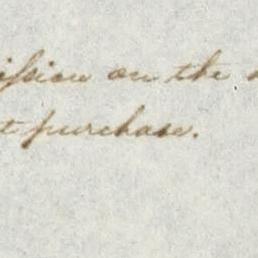 ission on the
t purchase.